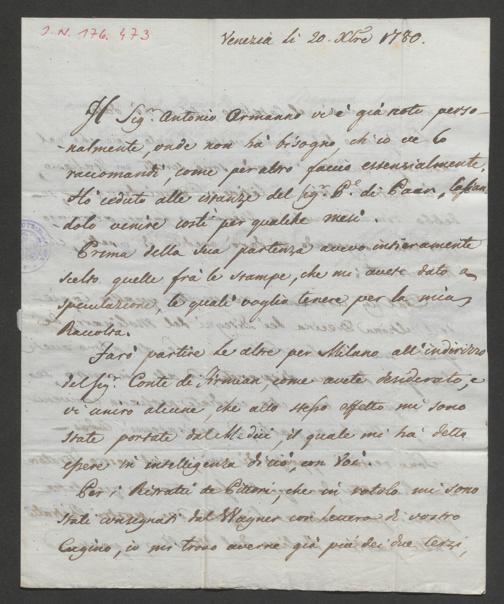 I. N. 176.473
Venezia li 20. Xbre 1780.
Il Sigr. Antonio Armanno vi è già noto perso-
nalmente, onde non hà bisogno, ch'io ve lo
raccomandi, come per altro faccio essenzialmente.
Hò ceduto alle istanze del Sigr. Ce. di Paar, lascian
dolo venire costì per qualche mesi.
Prima della Sua partenza avevo intieramente
scelto quelle frà le stampe, che mi avete dato a
speculazione, le quali voglio tenere per la mia
Raccolta.
Farò partire le altre per Milano all'indirizzo
del Sigr. Conte de Firmian, come avete desiderato, e
vi unirò alcune, che allo stesso effetto mi sono
state portate dal il quale mi hà detto
essere in intelligenza di ciò, con Voi.
Per i Ritratti de Pittori, che in rotolo mi sono
stati consegnati dal Wagner con lettera di vostro
Cugino, io mi trovo averne già più dei due terzi,